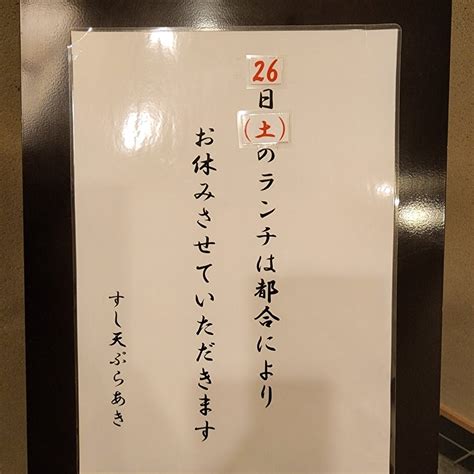 26日(土)のランチは都合により
お休みさせていただきます
すし天ぷらあき